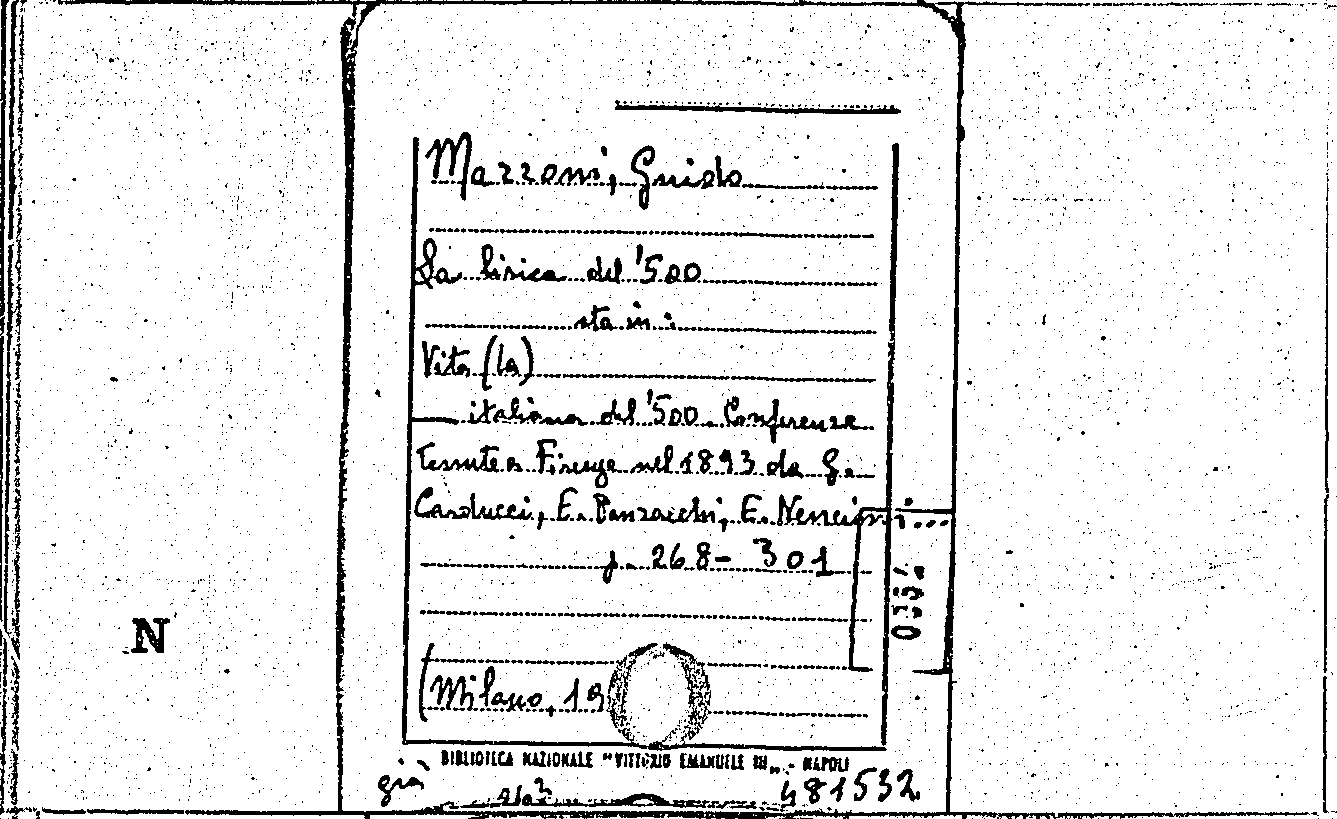 Mazzoni, Guido
La lirica del '500
sta in:
Vita (la)
— italiana del '500. Conferenze
tenute a Firenze nel 1893 da G.
Carducci, E. Panzacchi, E. Nencioni...
p. 268-301
N
(Milano, 19
BIBLIOTECA NAZIONALE "VITTORIO EMANUELE III„ - NAPOLI
già 481532